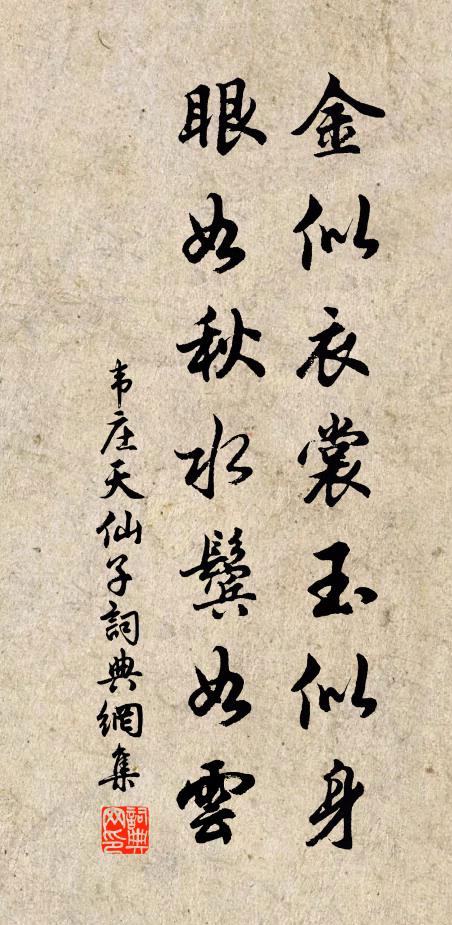 金似衣裳玉似身
眼如秋水鬓如雲
韦庄天仙子詞典網集
詞典网印